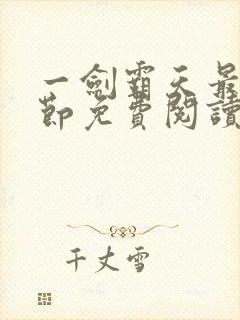 一劍霸天最
節免費閱讀
千丈雪